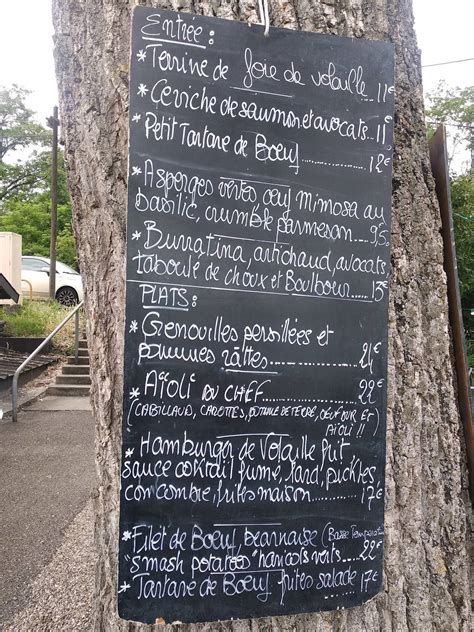 Entrée :
* Terrine de foie de volaille .. 11€
* Ceviche de saumon et avocats.. 11€
* Petit Tartare de Boeuf ........... 12€
* Asperges vertes, oeuf mimosa au
basilic, crumble parmesan.... 9,5
* Burratina, artichaud, avocats,
taboulé de choux et Boulgour..... 13€
PLATS :
* Grenouilles persillées et
pommes râttes................... 24€
* Aïoli DU CHEF .................. 22€
(CABILLAUD, CAROTTES, POMME DE TERRE, OEUF DUR ET
AÏOLI !!
* Hamburger de Volaille frit
sauce cocktail fumé, lard, pickles
concombre, frites maison.......... 17€
* Filet de Boeuf bearnaise (Basse Température)
"smash potatoes" haricots verts.... 22€
* Tartare de Boeuf frites salade ..... 17€